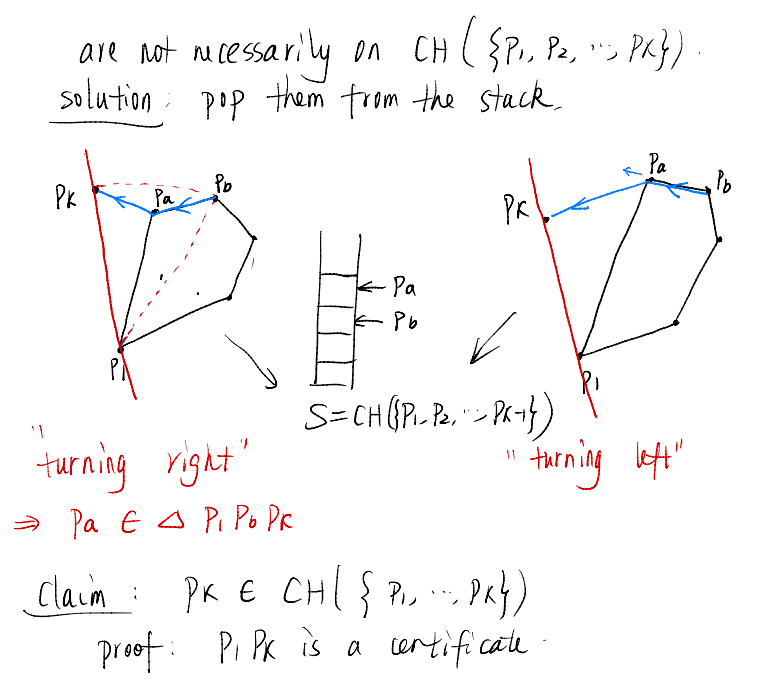 are not necessarily on CH({P1, P2, ..., PK}).
solution: pop them from the stack.
PK
Pa
Pb
P1
Pa
Pb
PK
Pa
Pb
P1
S=CH({P1, P2, ..., PK-1})
"turning right"
"turning left"
⇒ Pa ∈ △ P1 Pb PK
Claim: PK ∈ CH({P1, ..., PK})
proof: P1 PK is a certificate.